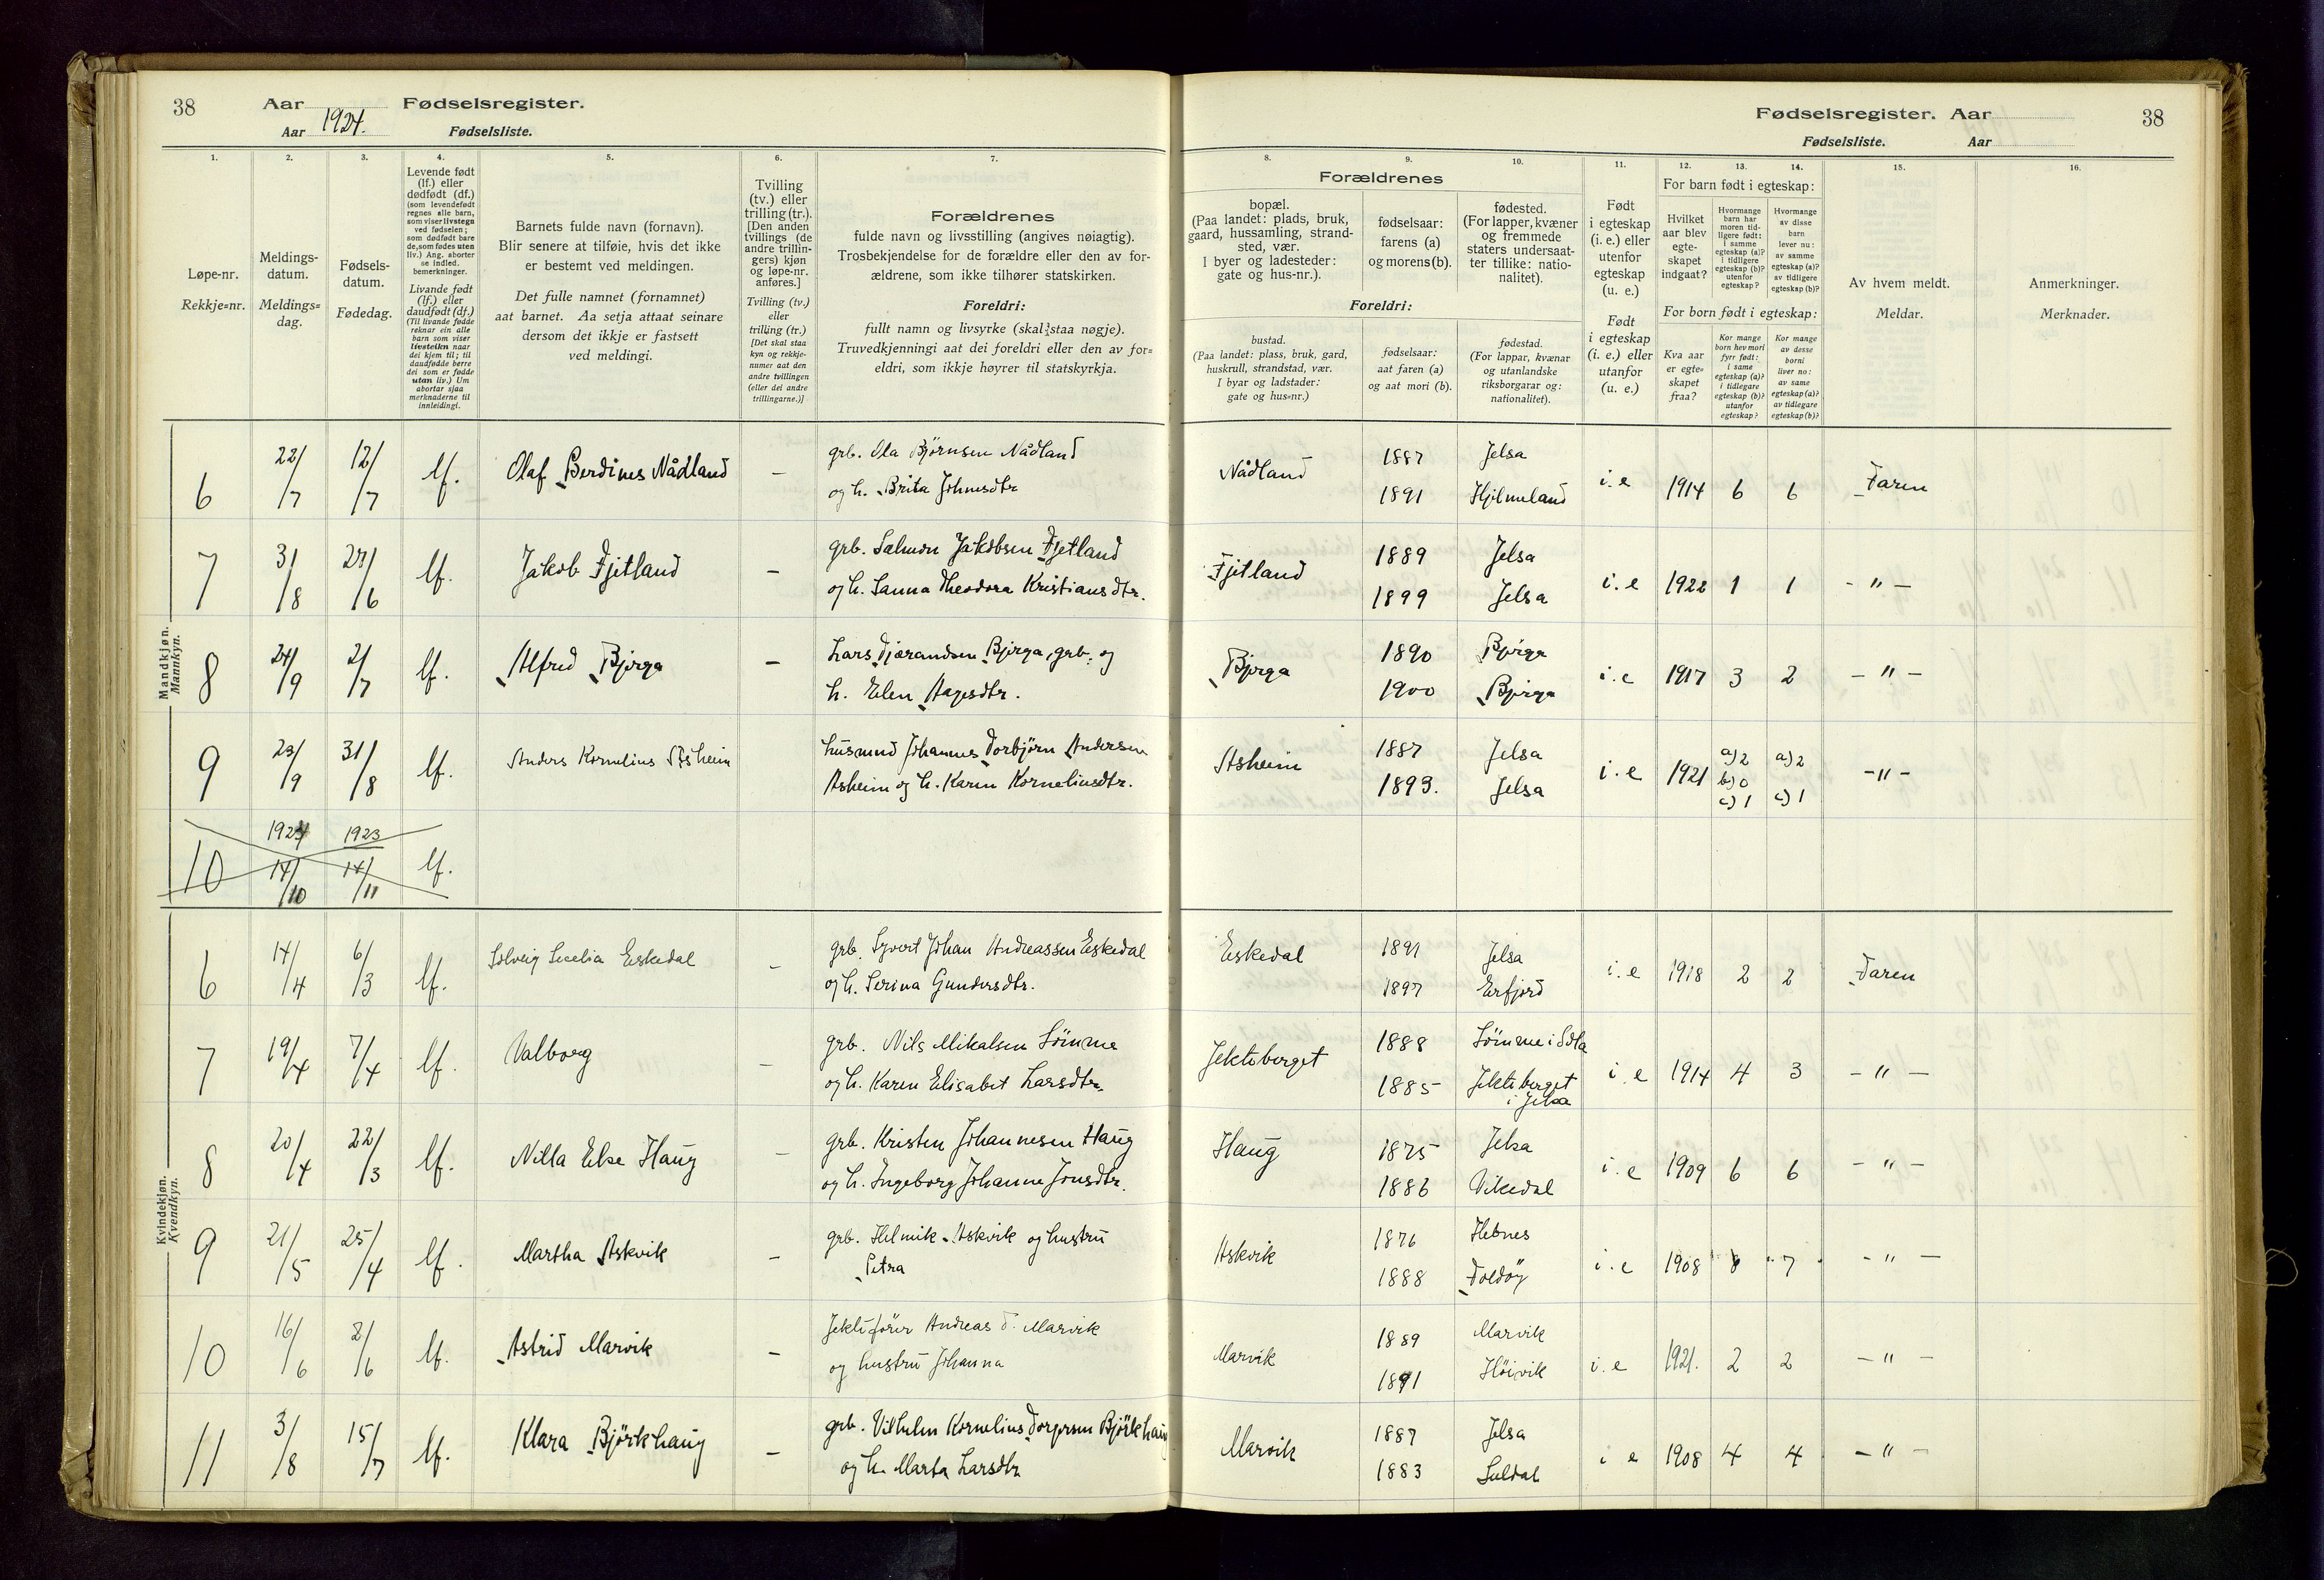 38 Aar Fødselsregister.
Aar 1924. Fødselsliste.
Fødselsregister. Aar 38
Fødselsliste. Aar
1. 2. 3. 4. 5. 6. 7. 8. 9. 10. 11. 12. 13. 14. 15. 16.
Løpe-nr.
Rekkje=nr.
Meldings-
datum.
Meldings=
dag.
Fødsels-
datum.
Fødedag.
Levende født
(lf.) eller
dødfødt (df.)
(som levendefødt
regnes alle barn,
som viser livstegn
ved fødselen;
som dødfødt bare
de, som fødes uten
liv.) Ang. aborter
se indled.
bemerkninger.
Livande født
(lf.) eller
daudfødt (df.)
(Til livande fødde
reknar ein alle
barn som viser
livsteikn naar
dei kjem til; til
daudfødde berre
dei som er fødde
utan liv.) Um
abortar sjaa
merknaderne til
innleidingi.
Barnets fulde navn (fornavn).
Blir senere at tilføie, hvis det ikke
er bestemt ved meldingen.
Det fulle namnet (fornamnet)
aat barnet. Aa setja attaat seinare
dersom det ikkje er fastsett
ved meldingi.
Tvilling
(tv.) eller
trilling (tr.).
[Den anden
tvillings (de
andre trillin-
gers) kjøn
og løpe-nr.
anføres.]
Tvilling (tv.)
eller
trilling (tr.)
[Det skal staa
kyn og rekkje-
numer aat den
andre tvillingen
(eller dei andre
trillingarne.)]
Forældrenes
fulde navn og livsstilling (angives nøiagtig).
Trosbekjendelse for de forældre eller den av for-
ældrene, som ikke tilhører statskirken.
Foreldri:
fullt namn og livsyrke (skal staa nøgje).
Truvedkjenningi aat dei foreldri eller den av for=
eldri, som ikkje høyrer til statskyrkja.
Forældrenes
bopæl.
(Paa landet: plads, bruk,
gaard, hussamling, strand-
sted, vær.
I byer og ladesteder:
gate og hus-nr.).
fødselsaar:
farens (a)
og morens (b).
fødested.
(For lapper, kvæner
og fremmede
staters undersaat-
ter tillike: natio-
nalitet).
Foreldri:
bustad.
(Paa landet: plass, bruk, gard,
huskrull, strandstad, vær.
I byar og ladstader:
gate og hus=nr.)
fødselsaar:
aat faren (a)
og aat mori (b).
fødestad.
(For lappar, kvænar
og utanlandske
riksborgarar og:
nationalitet).
Født
i egteskap
(i. e.) eller
utenfor
egteskap
(u. e.)
Født
i egteskap
(i. e.) eller
utanfor
(u. e.)
For barn født i egteskap:
Hvilket
aar blev
egte-
skapet
indgaat?
Hvormange
barn har
moren tid-
ligere født:
i samme
egteskap (a)?
i tidligere
egteskap (b)?
utenfor
egteskap?
Hvormange
av disse
barn
lever nu:
av samme
egteskap (a)?
av tidligere
egteskap (b)?
For born født i egteskap:
Kva aar
er egte=
skapet
fraa?
Kor mange
born hev mori
fyrr født:
i same
egteskap (a)?
i tidlegare
egteskap (b)?
utanfor
egteskap?
Kor mange
av desse
borni
liver no:
av same
egteskap (a)?
av tidlegare
egteskap (b)?
Av hvem meldt.
Meldar.
Anmerkninger.
Merknader.
Mandkjøn.
Mannkyn.
6 22/7 12/7 lf. Olaf Berdines Nådland – grb. Ola Bjørnsen Nådland
og h. Brita Johnesdtr
Nådland 1887 Jelsa i.e 1914 6 6 Faren
1891 Hjelmeland
7 3/8 27/6 lf. Jakob Fjetland – grb. Salmon Jakobsen Fjetland
og h. Sanna Theodora Kristiansdtr.
Fjetland 1889 Jelsa i.e 1922 1 1 – " –
1899 Jelsa
8 24/9 2/7 lf. Alfred Bjørga – Lars Tjærandsen Bjørga, grb. og
h. Elen Aagesdtr.
Bjørga 1890 Bjørga i.e 1917 3 2 – " –
1900 Bjørga
9 23/9 31/8 lf. Anders Kornelius Åsheim husmnd Johannes Torbjörn Andersen
Asheim og h. Karen Korneliusdtr.
Asheim 1887 Jelsa i.e 1921 a) 2 b) 0 c) 1 a) 2 c) 1 – " –
1893. Jelsa
10 1924 14/10 1923 14/11 lf.
Kvindekjøn.
Kvendkyn.
6 14/4 6/3 lf. Solveig Secelia Eskedal – grb. Syvert Johan Andreassen Eskedal
og h. Serina Gundersdtr.
Eskedal 1891 Jelsa i.e 1918 2 2 Faren
1897 Erfjord
7 19/4 7/4 lf. Valborg – grb. Nils Mikalsen Sömme
og h. Karen Elisabet Larsdtr.
Jekteberget 1888 Sömme i Sola i.e 1914 4 3 – " –
1885 Jekteberget
i Jelsa
8 20/4 22/3 lf. Nilla Else Haug – grb. Kristen Johannesen Haug
og h. Ingeborg Johanne Jonsdtr.
Haug 1875 Jelsa i.e 1909 6 6 – " –
1886 Vikedal
9 21/5 25/4 lf. Martha Askvik – grb. Helmik Askvik og hustru
Petra
Askvik 1876 Hebnes i.e 1908 8 7 – " –
1888 Foldöy
10 16/6 2/6 lf. Astrid Marvik – Jektefører Andreas T. Marvik
og hustru Johanna
Marvik 1889 Marvik i.e 1921. 2 2 – " –
1891 Höivik
11 3/8 15/7 lf. Klara Björkhaug – grb. Vilhelm Kornelius Torgersen Björkhaug
og h. Marta Larsdtr
Marvik 1887 Jelsa i e 1908 4 4 – " –
1883 Suldal